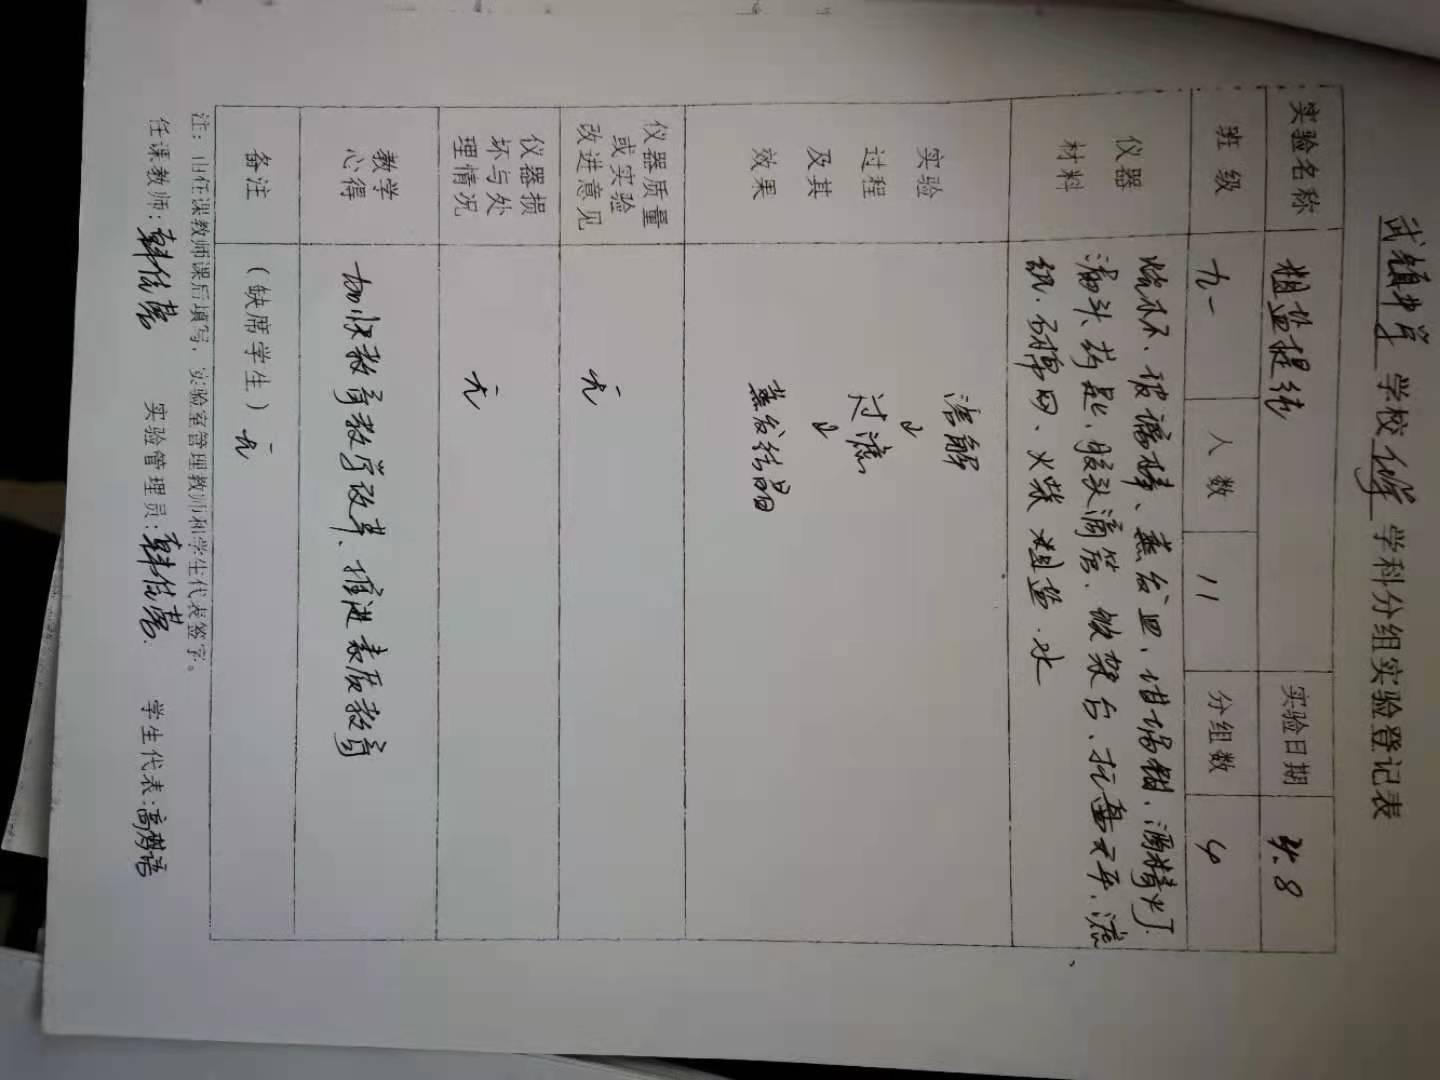 武镇中学 学校 化学 学科分组实验登记表
实验名称 粗盐提纯 实验日期 4.8
班级 九一 人数 11 分组数 4
仪器材料 烧杯、玻璃棒、蒸发皿、坩埚钳、酒精灯、
漏斗、药匙、胶头滴管、铁架台、托盘天平、滤
纸、石棉网、火柴 粗盐 水
实验过程及其效果 溶解
↓
过滤
↓
蒸发结晶
仪器质量或实验改进意见 无
仪器损坏与处理情况 无
教学心得 加快教育教学改革、推进素质教育
备注 （缺席学生） 无
注：由任课教师课后填写，实验室管理教师和学生代表签字。
任课教师：韩 实验管理员：韩 学生代表：高梦语